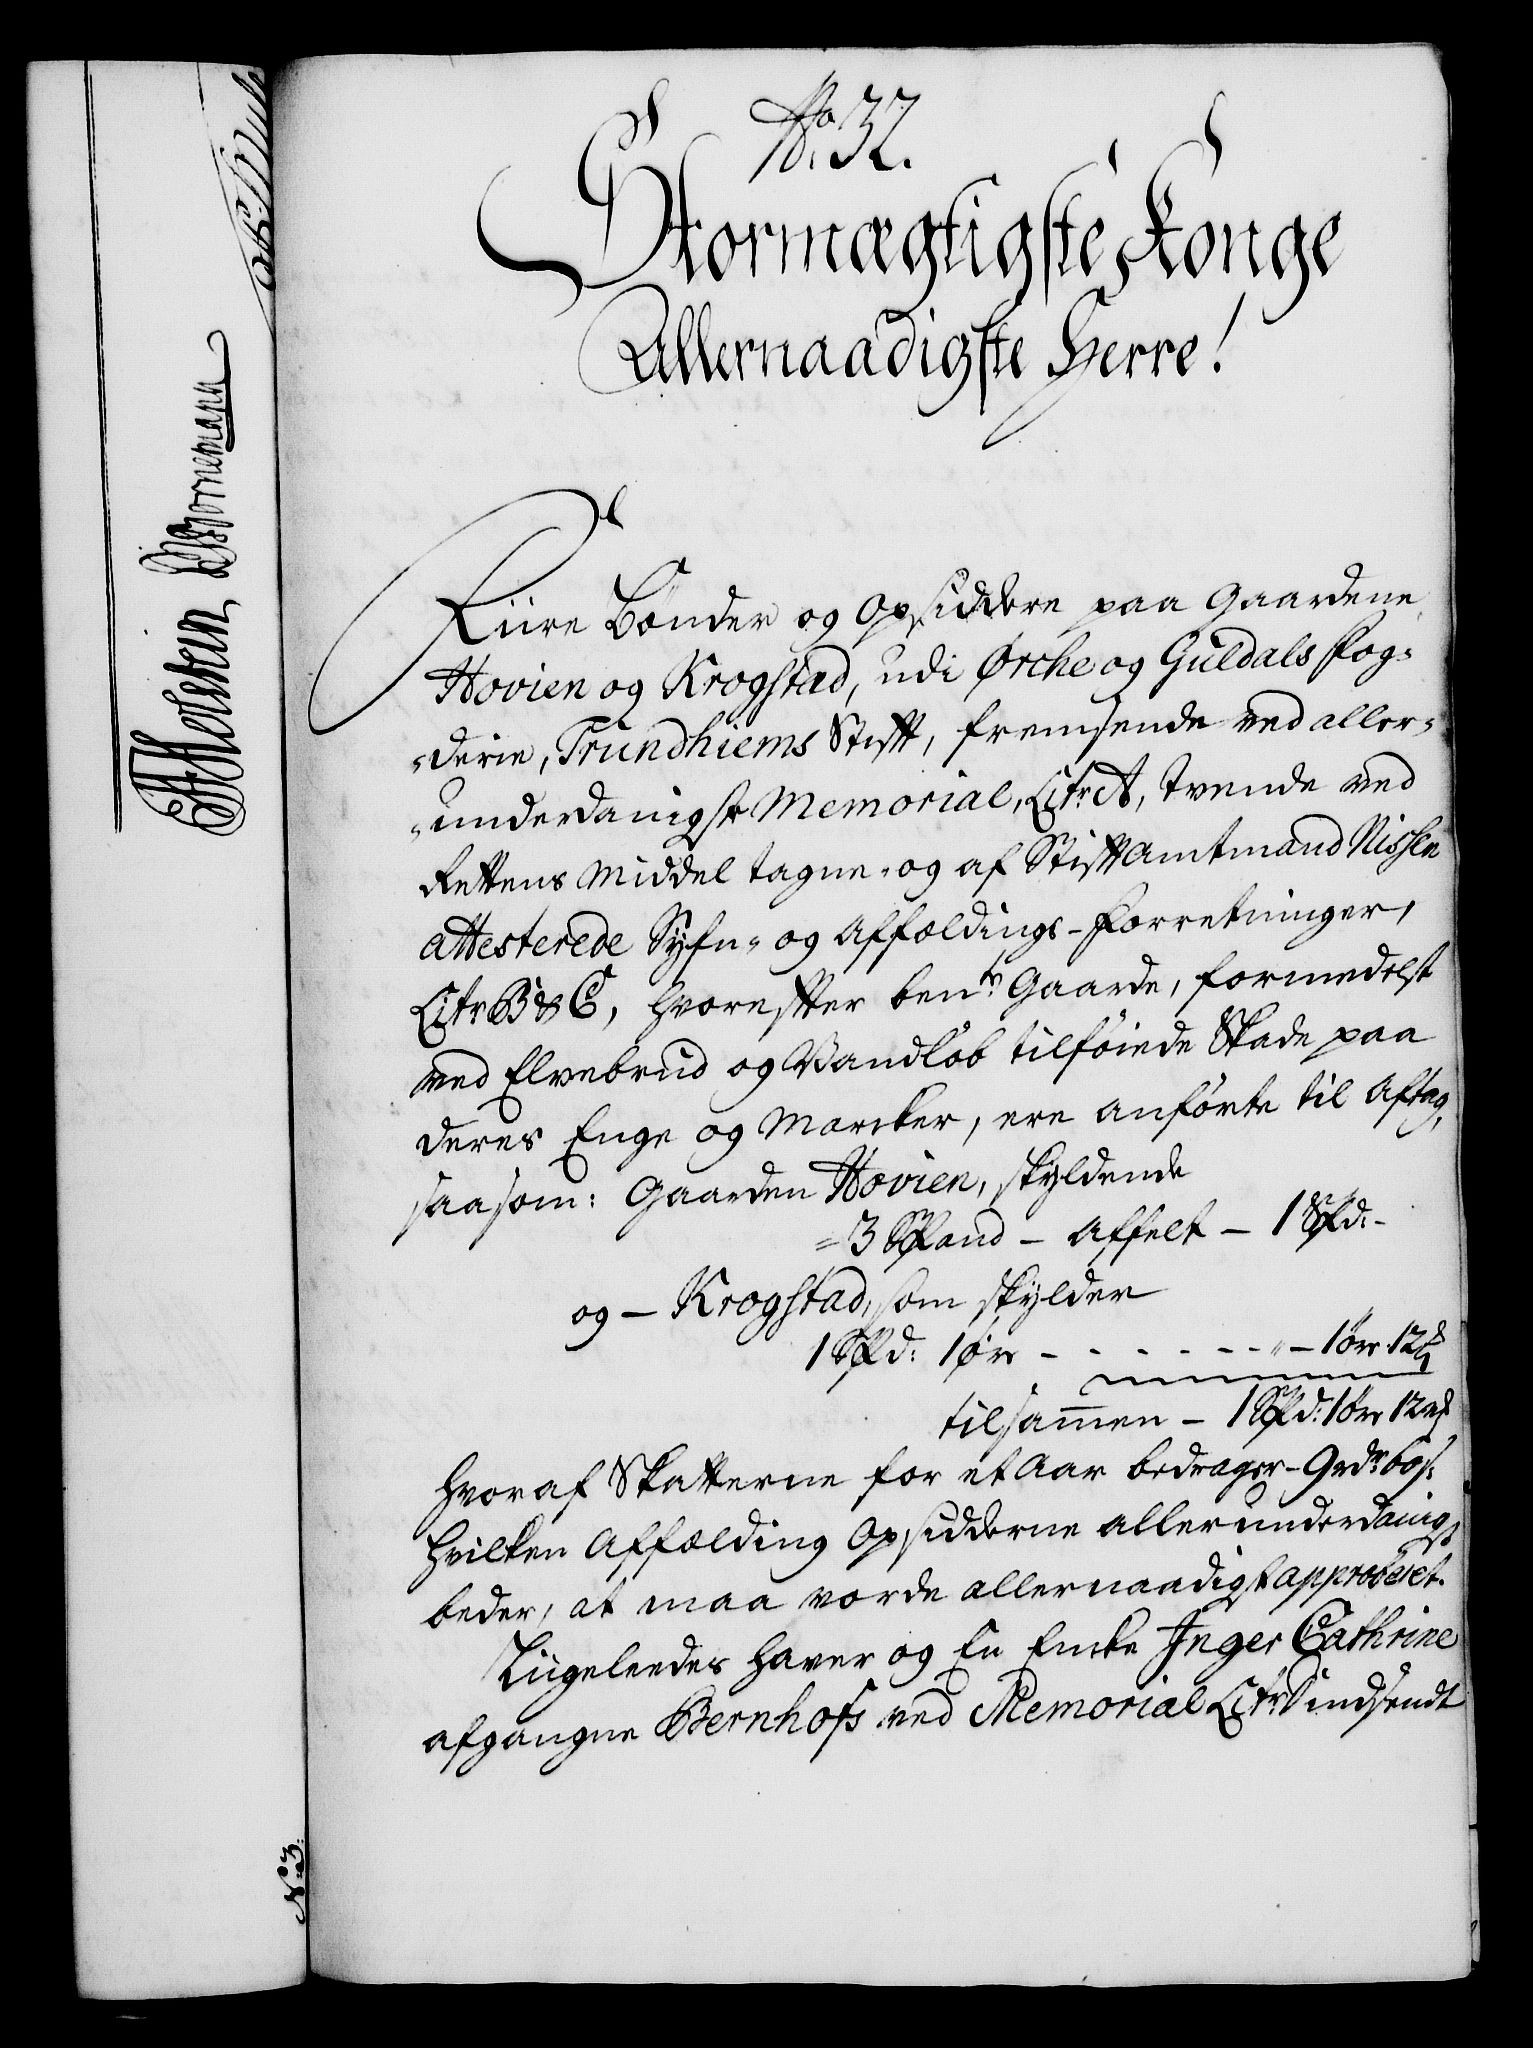 No 32.
Stormægtigste Konge
Allernaadigste Herre!
Fiire Bønder og Opsiddere paa Gaardene
Hovien og Krogstad, udi Ørche og Guldals Fog-
-derie, Trundhiems Stift, fremsende ved aller-
-underdanigst Memorial, Litr. A, tvende ved
Rettens Middel tagne- og af Stiftamtmand Nissen
attesterede Syfn- og Affældings-Forretninger,
Litr B & C, hvorefter bente Gaarde, formedelst
ved Elvebrud og Vandløb tilføiede Skade paa
deres Enge og Marcker, ere anførte til Aftag,
saasom: Gaarden Hovien, skyldende
=3 Spand - Affelt - 1 Spd: -
og - Krogstad, som skylder
1 Spd: 1 ør - - - - - - " - 1 ør 12
tilsammen - 1 Spd: 1 ør 12
hvoraf Skatterne for et Aar bedrager - 9 rdr 60 s:
hvilken Affælding Opsidderne allerunderdanigst
beder, at maa vorde allernaadigst approberet.
Liigeleedes haver og En Encke Inger Cathrine
afgangne Bernhofs ved Memorial Litr D indsendt
Bornemann
No 3: